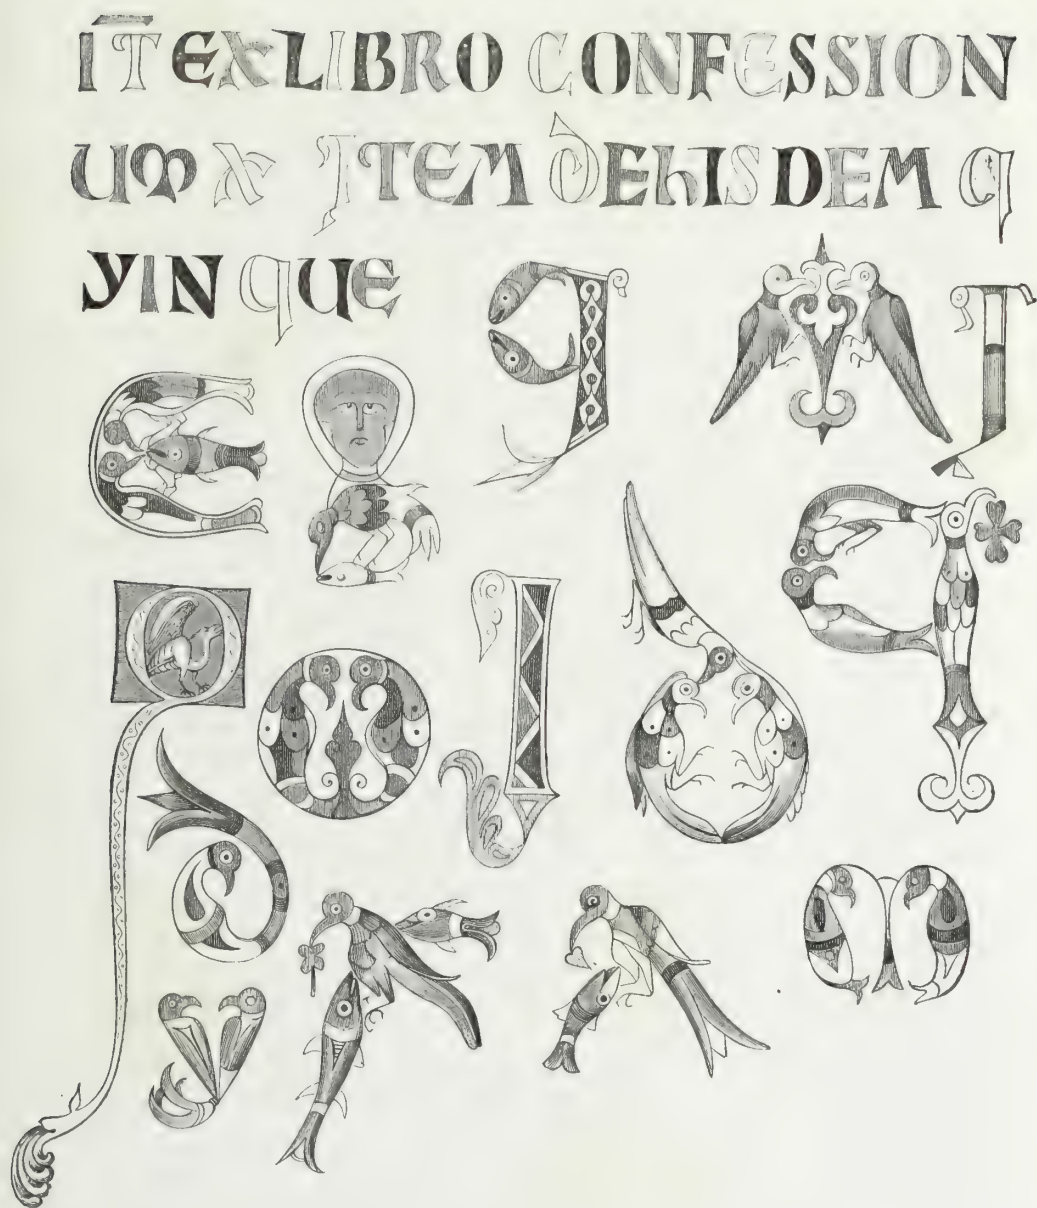 IT EX LIBRO CONFESSION
UM X ITEM DE hISDEM Q
VINQUE